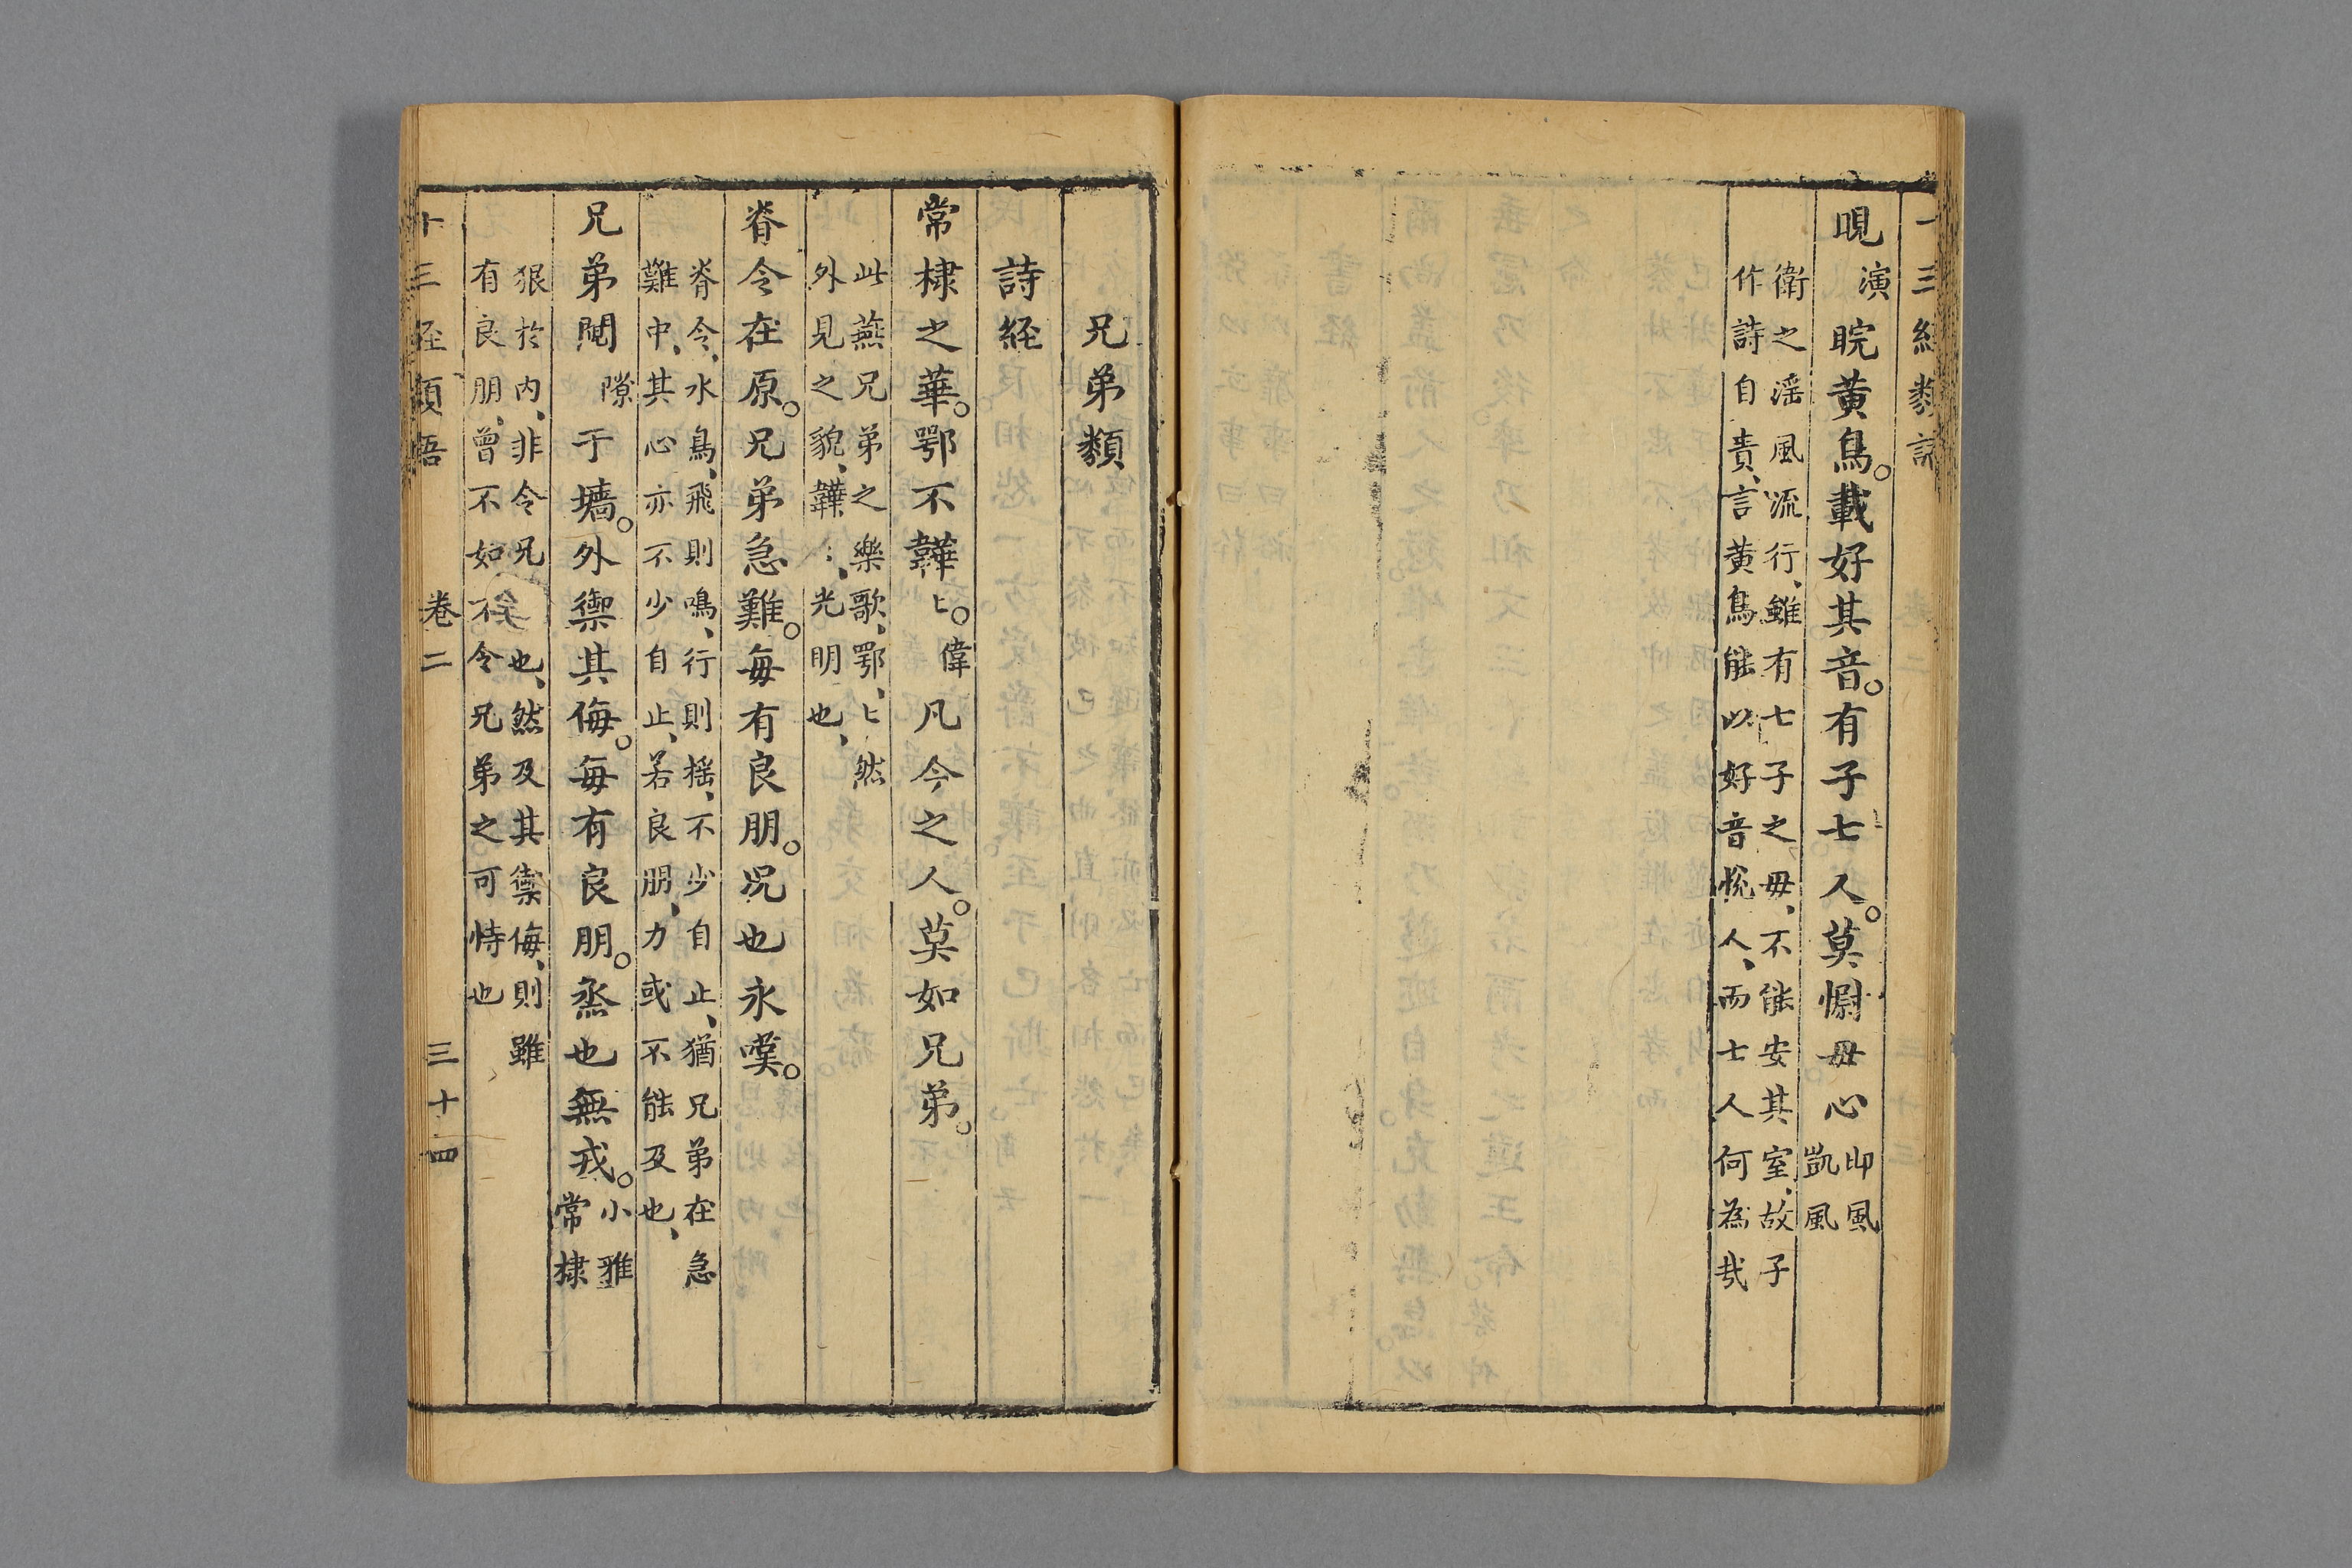 睍演睆黃鳥。載好其音。有子七人。莫慰毋心邶風凱風
衛之淫風流行、雖有七子之毋、不能安其室、故子
作詩自責、言黃鳥能以好音悅人、而士人何為哉
兄弟類
詩経
常棣之華。鄂不韡〻。偉凡今之人。莫如兄弟。
此燕兄弟之樂歌、鄂、〻然
外見之貌、韡〻、光明也、
脊令在原。兄弟急難。每有良朋。况也永嘆。
脊令、水鳥、飛則鳴、行則摇、不少自止、猶兄弟在急
難中、其心亦不少自止、若良朋、力或不能及也、
兄弟鬩隙于墻。外禦其侮。每有良朋。烝也無戎。小雅常棣
狠於内、非令兄也、然及其禦侮、則雖
有良朋、曾不如不令兄弟之可恃也
卷二
三十四